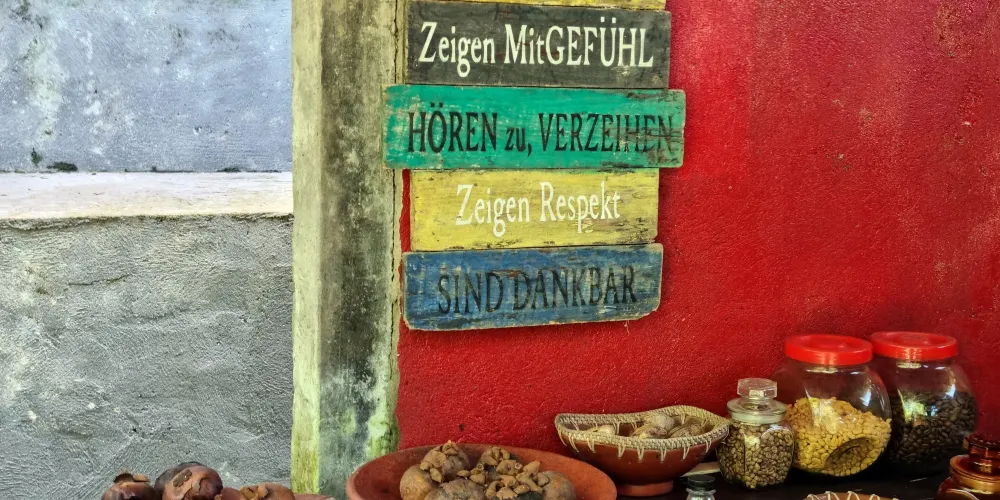 Zeigen MitGEFÜHL
HÖREN zu, VERZEIHEN
Zeigen Respekt
SIND DANKBAR